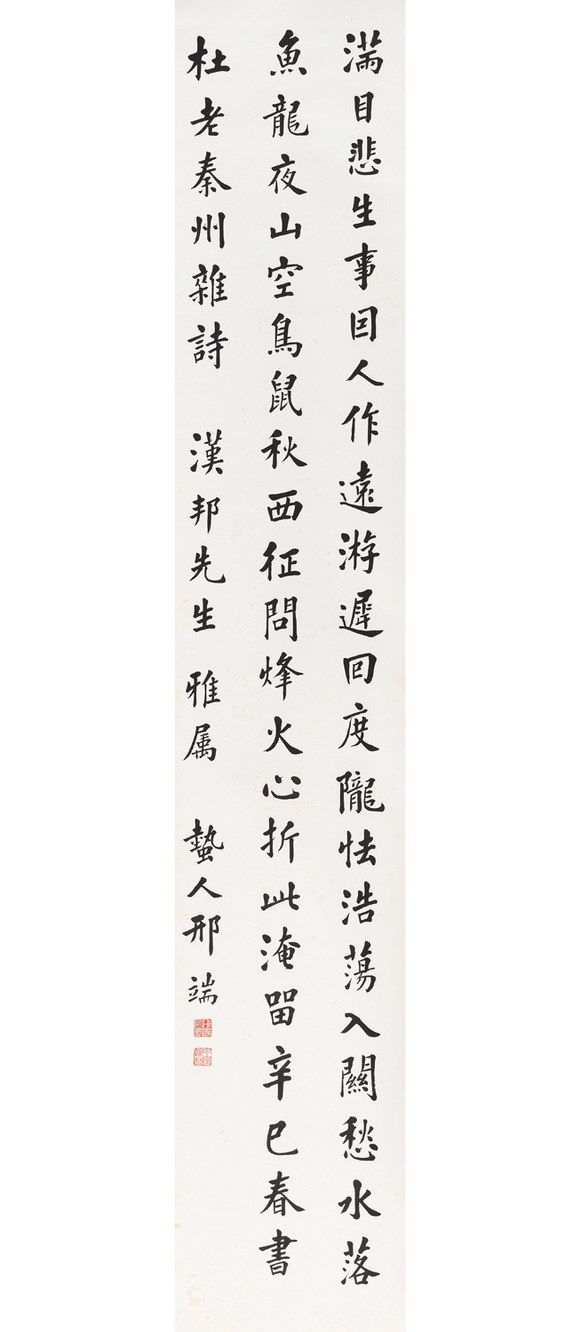 満目悲生事囙人作遠游遲回度隴怯浩蕩入關愁水落
魚龍夜山空鳥鼠秋西征問烽火心折此淹畱辛巳春書
杜老秦州雜詩 漢邦先生 雅属 蟄人邢端